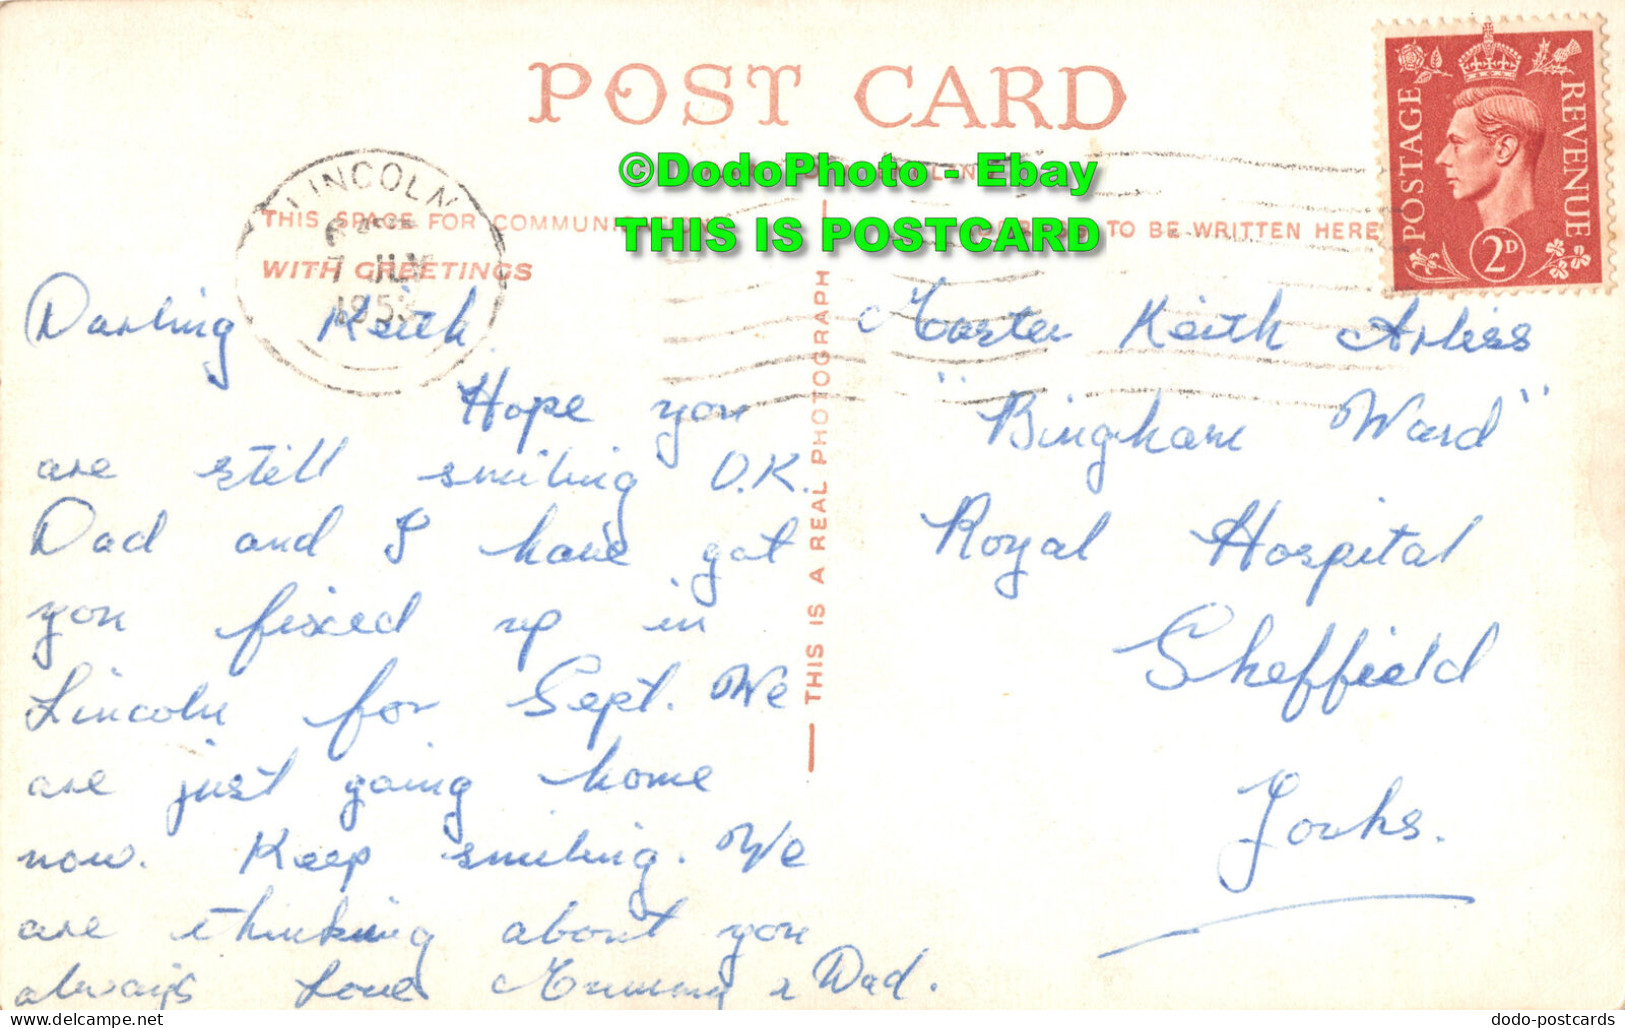 POST CARD
©DodoPhoto - Ebay
THIS IS POSTCARD
LINCOLN
7 JLY
195
THIS SPACE FOR COMMUNICATION
WITH GREETINGS
TO BE WRITTEN HERE
POSTAGE REVENUE
2D
THIS IS A REAL PHOTOGRAPH
Darling Keith.
Hope you
are still smiling O.K.
Dad and I have got
you fixed up in
Lincoln for Sept. We
are just going home
now. Keep smiling. We
are thinking about you
always Love Mummy & Dad.
Master Keith Arliss
"Bingham Ward"
Royal Hospital
Sheffield
Yorks.
dodo-postcards
www.delcampe.net